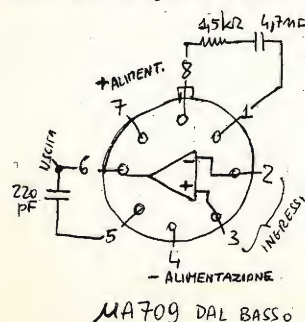 1,5kΩ 4,7nF
+ ALIMENT. 8
7 1
USCITA
6 - 2
220
pF
+
5 3
4
INGRESSI
- ALIMENTAZIONE
µA709 DAL BASSO